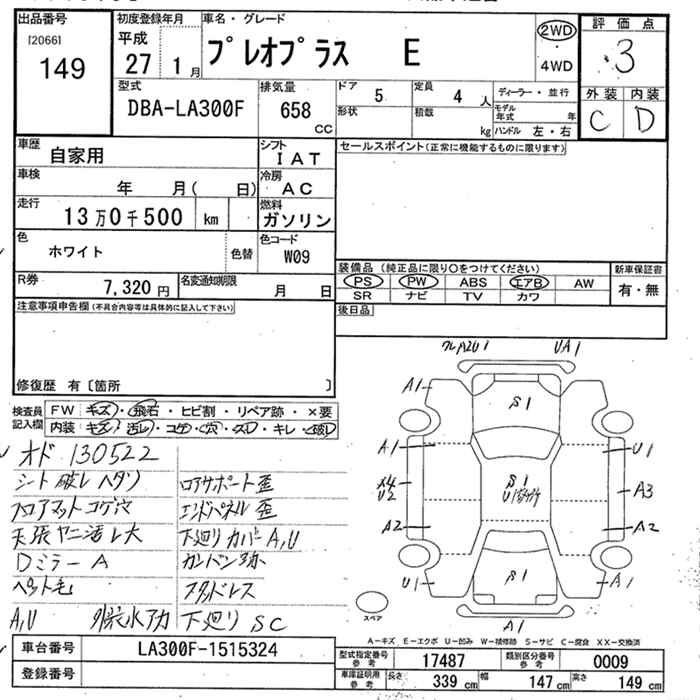 出品番号
[2066]
149
初度登録年月
平成
27 1月
車名・グレード
プレオプラス E
2WD
4WD
評価点
3
外装 内装
C D
型式
DBA-LA300F
排気量
658 CC
ドア
5
形状
定員
4人
積数
kg
ディーラー・並行
モデル年式 年
ハンドル 左・右
車歴
自家用
シフト
IAT
セールスポイント(正常に機能するものに限ります)
車検
年 月( 日)
冷房
AC
走行
13万0千500 km
燃料
ガソリン
色
ホワイト
色替
色コード
W09
R券
7,320円
名変通知期限
月 日
装備品(純正品に限り〇をつけてください)
PS PW ABS エアB AW
SR ナビ TV カワ
新車保証書
有・無
後日品
注意事項申告欄(不具合内容等は具体的に記入して下さい)
修復歴 有〔箇所 〕
検査員記入欄
FW キズ・飛石・ヒビ割・リペア跡・×要
内装 キズ・汚レ・コゲ・穴・スレ・キレ・破レ
オド 130522
シート破レヘタリ
フロアマットコゲ穴
天張ヤニ汚レ大
Dミラー A
ペット毛
A,U 外装水アカ
ロアサポート歪
エンドパネル歪
下廻リカバーA,U
カンバン跡
スタッドレス
下廻リ SC
UA1
A1
S1
A1
U1
S1
U2
A3
A2
A2
S1
U1
A1
A1
スペア
A-キズ E-エクボ U-凹み W-補修跡 S-サビ C-腐食 XX-交換済
車台番号
LA300F-1515324
登録番号
型式指定番号 参考
17487
類別区分番号 参考
0009
車庫証明用 参考
長さ 339cm 幅 147cm 高さ 149cm